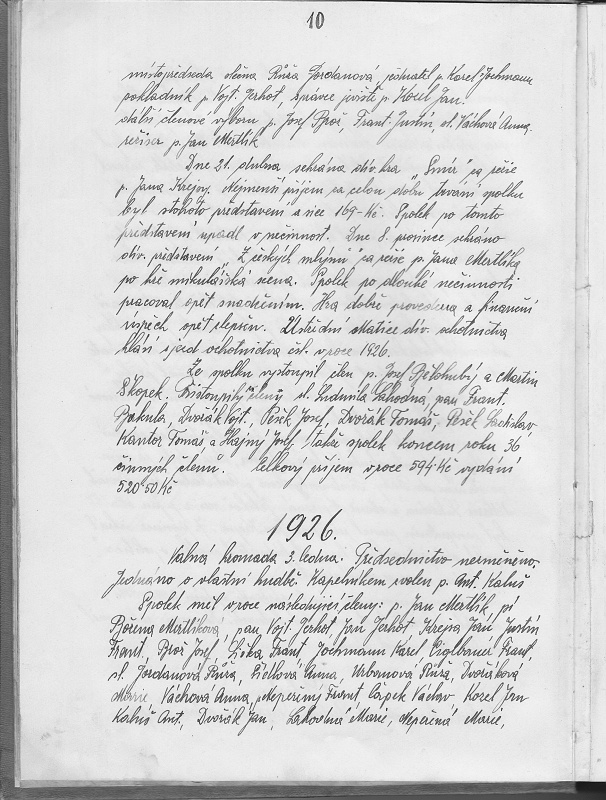 10
místopředseda slečna Růža Jordanová, jednatel p. Karel Jochmann
pokladník p. Vojt. Jerhot, správce jeviště p. Kozel Jan.
další členové výboru p. Josef Brož, Frant. Justin, sl. Váchová Anna.
režiser p. Jan Mertlík
Dne 21. dubna sehrána div. hra „Směr" za režie
p. Jana Krejsy. Nejmenší příjem za celou dobu trvání spolku
byl z tohoto představení a sice 169-Kč. Spolek po tomto
představení upadl v nečinnost. Dne 8. prosince sehráno
div. představení „Z českých mlýnů" za režie p. Jana Mertlíka
po hře mikulášská scena. Spolek po dlouhé nečinnosti
pracoval opět s nadšením. Hra dobře provedena a finanční
úspěch opět zlepšen. Ústřední Matice div. ochotnictva
hlásí sjezd ochotnictva čsl. v roce 1926.
Ze spolku vystoupil člen p. Josef Bělohubý a Martin
Skopek. Přistoupily členy sl. Ludmila Lahodná, pan Frant.
Bakula, Dvořák Vojt., Pešek Josef, Dvořák Tomáš, Pešek Ladislav
Kantor Tomáš a Hajný Josef. Takže spolek koncem roku 36
činných členů. Celkový příjem v roce 594 Kč vydání
520·50 Kč
1926.
Valná hromada 3. ledna. Předsednictvo nezměněno.
Jednáno o vlastní hudbě Kapelníkem zvolen p. Ant. Kalaš
Spolek měl v roce následující členy: p. Jan Mertlík, pí
Božena Mertlíková, pan Vojt. Jerhot, Jan Jerhot, Krejsa Jan, Justin
Frant., Brož Josef, Liška Frant., Jochmann Karel, Ciglbauer Frant.,
sl. Jordanová Růža, Anna, Urbanová Růža, Dvořáková
Marie, Váchová Anna, Nepeřený Frant. Čapek Václav Kozel Jan
Kalaš Ant., Dvořák Jan, Lahodná Marie, Nepeřená Marie,